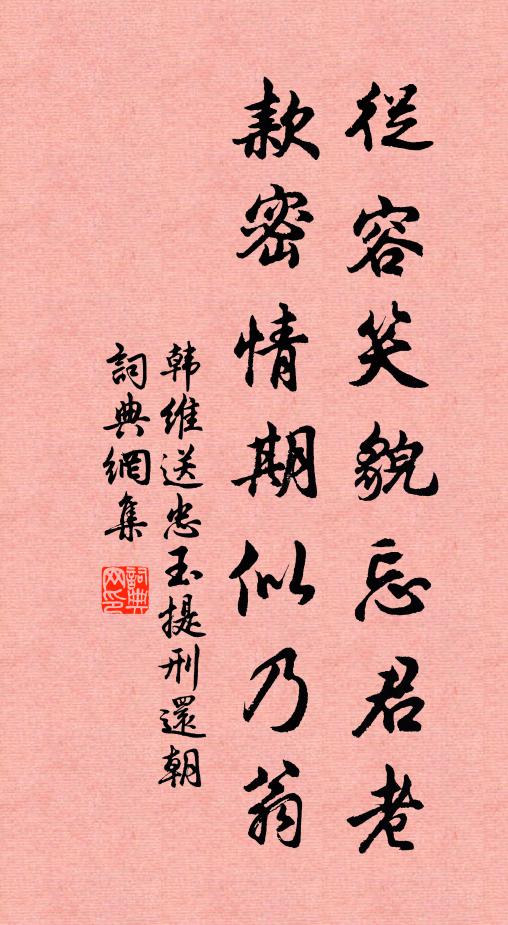 從容笑貌忘君老
款密情期似乃翁
韩維送忠玉提刑還朝
詞典網集
詞典网印